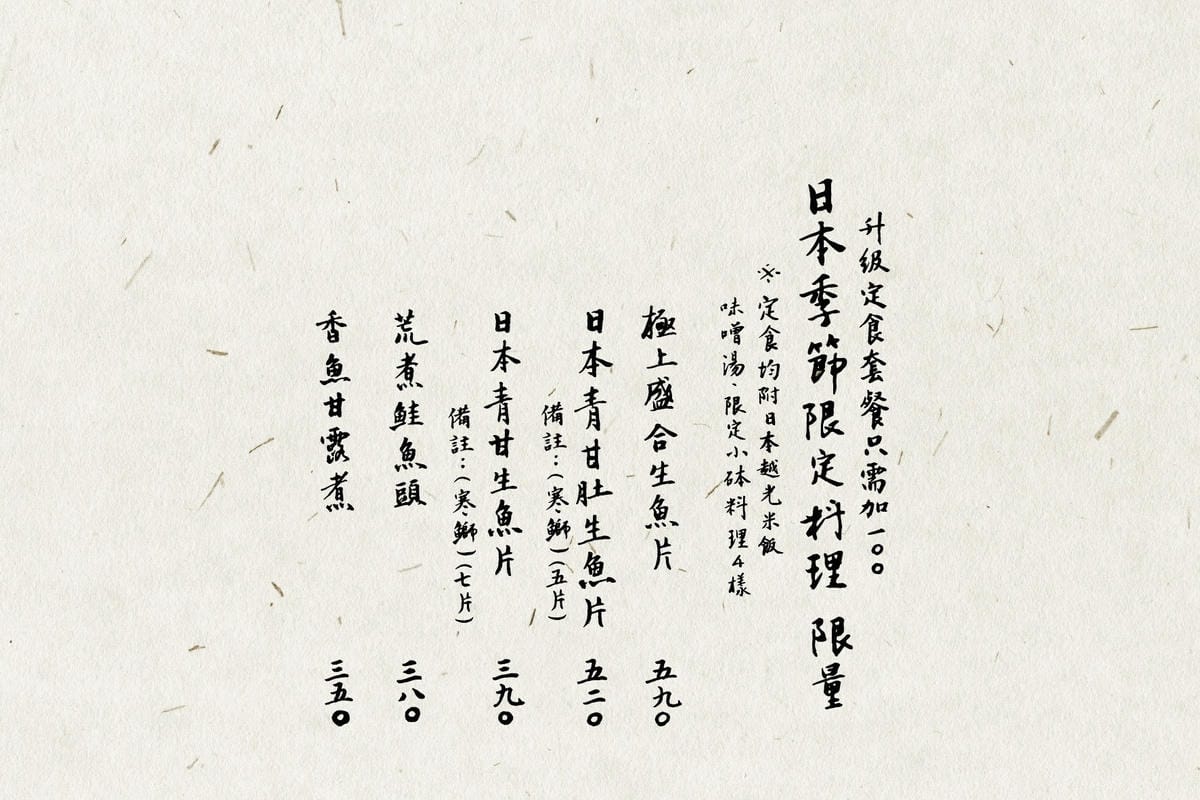 升級定食套餐只需加一〇〇
日本季節限定料理 限量
※定食均附日本越光米飯
味噌湯、限定小砵料理4樣
極上盛合生魚片 五九〇
日本青甘肚生魚片 五二〇
備註：（寒鰤）（五片）
日本青甘生魚片 三九〇
備註：（寒鰤）（七片）
荒煮鮭魚頭 三八〇
香魚甘露煮 三五〇